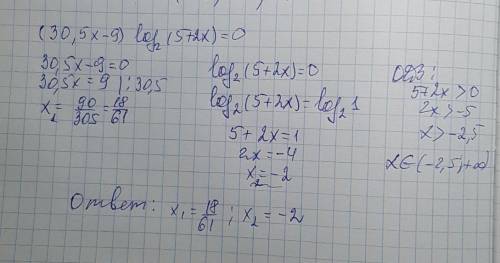 (30,5x-9) log₂(5+2x)=0
30,5x-9=0
30,5x=9 |:30,5
x₁=90/305=18/61
log₂(5+2x)=0
log₂(5+2x)=log₂1
5+2x=1
2x=-4
x₂=-2
ОДЗ:
5+2x>0
2x>-5
x>-2,5
x∈(-2,5;+∞)
Ответ: x₁=18/61; x₂=-2